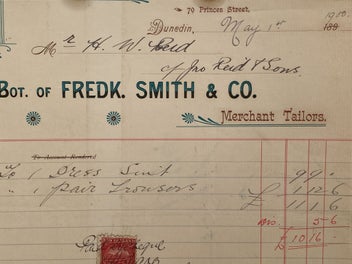 70 Princes Street.
Dunedin, May 1st 1900.
189
Mr H. W. Reid
of Jno Reid & Sons.
BOT. OF FREDK. SMITH & CO.
Merchant Tailors.
To Account Rendered
To 1 Dress Suit 9 9 -
" 1 pair Trousers £ 1 12 6
£ 11 1 6
Dis. 5-6
£ 10 16